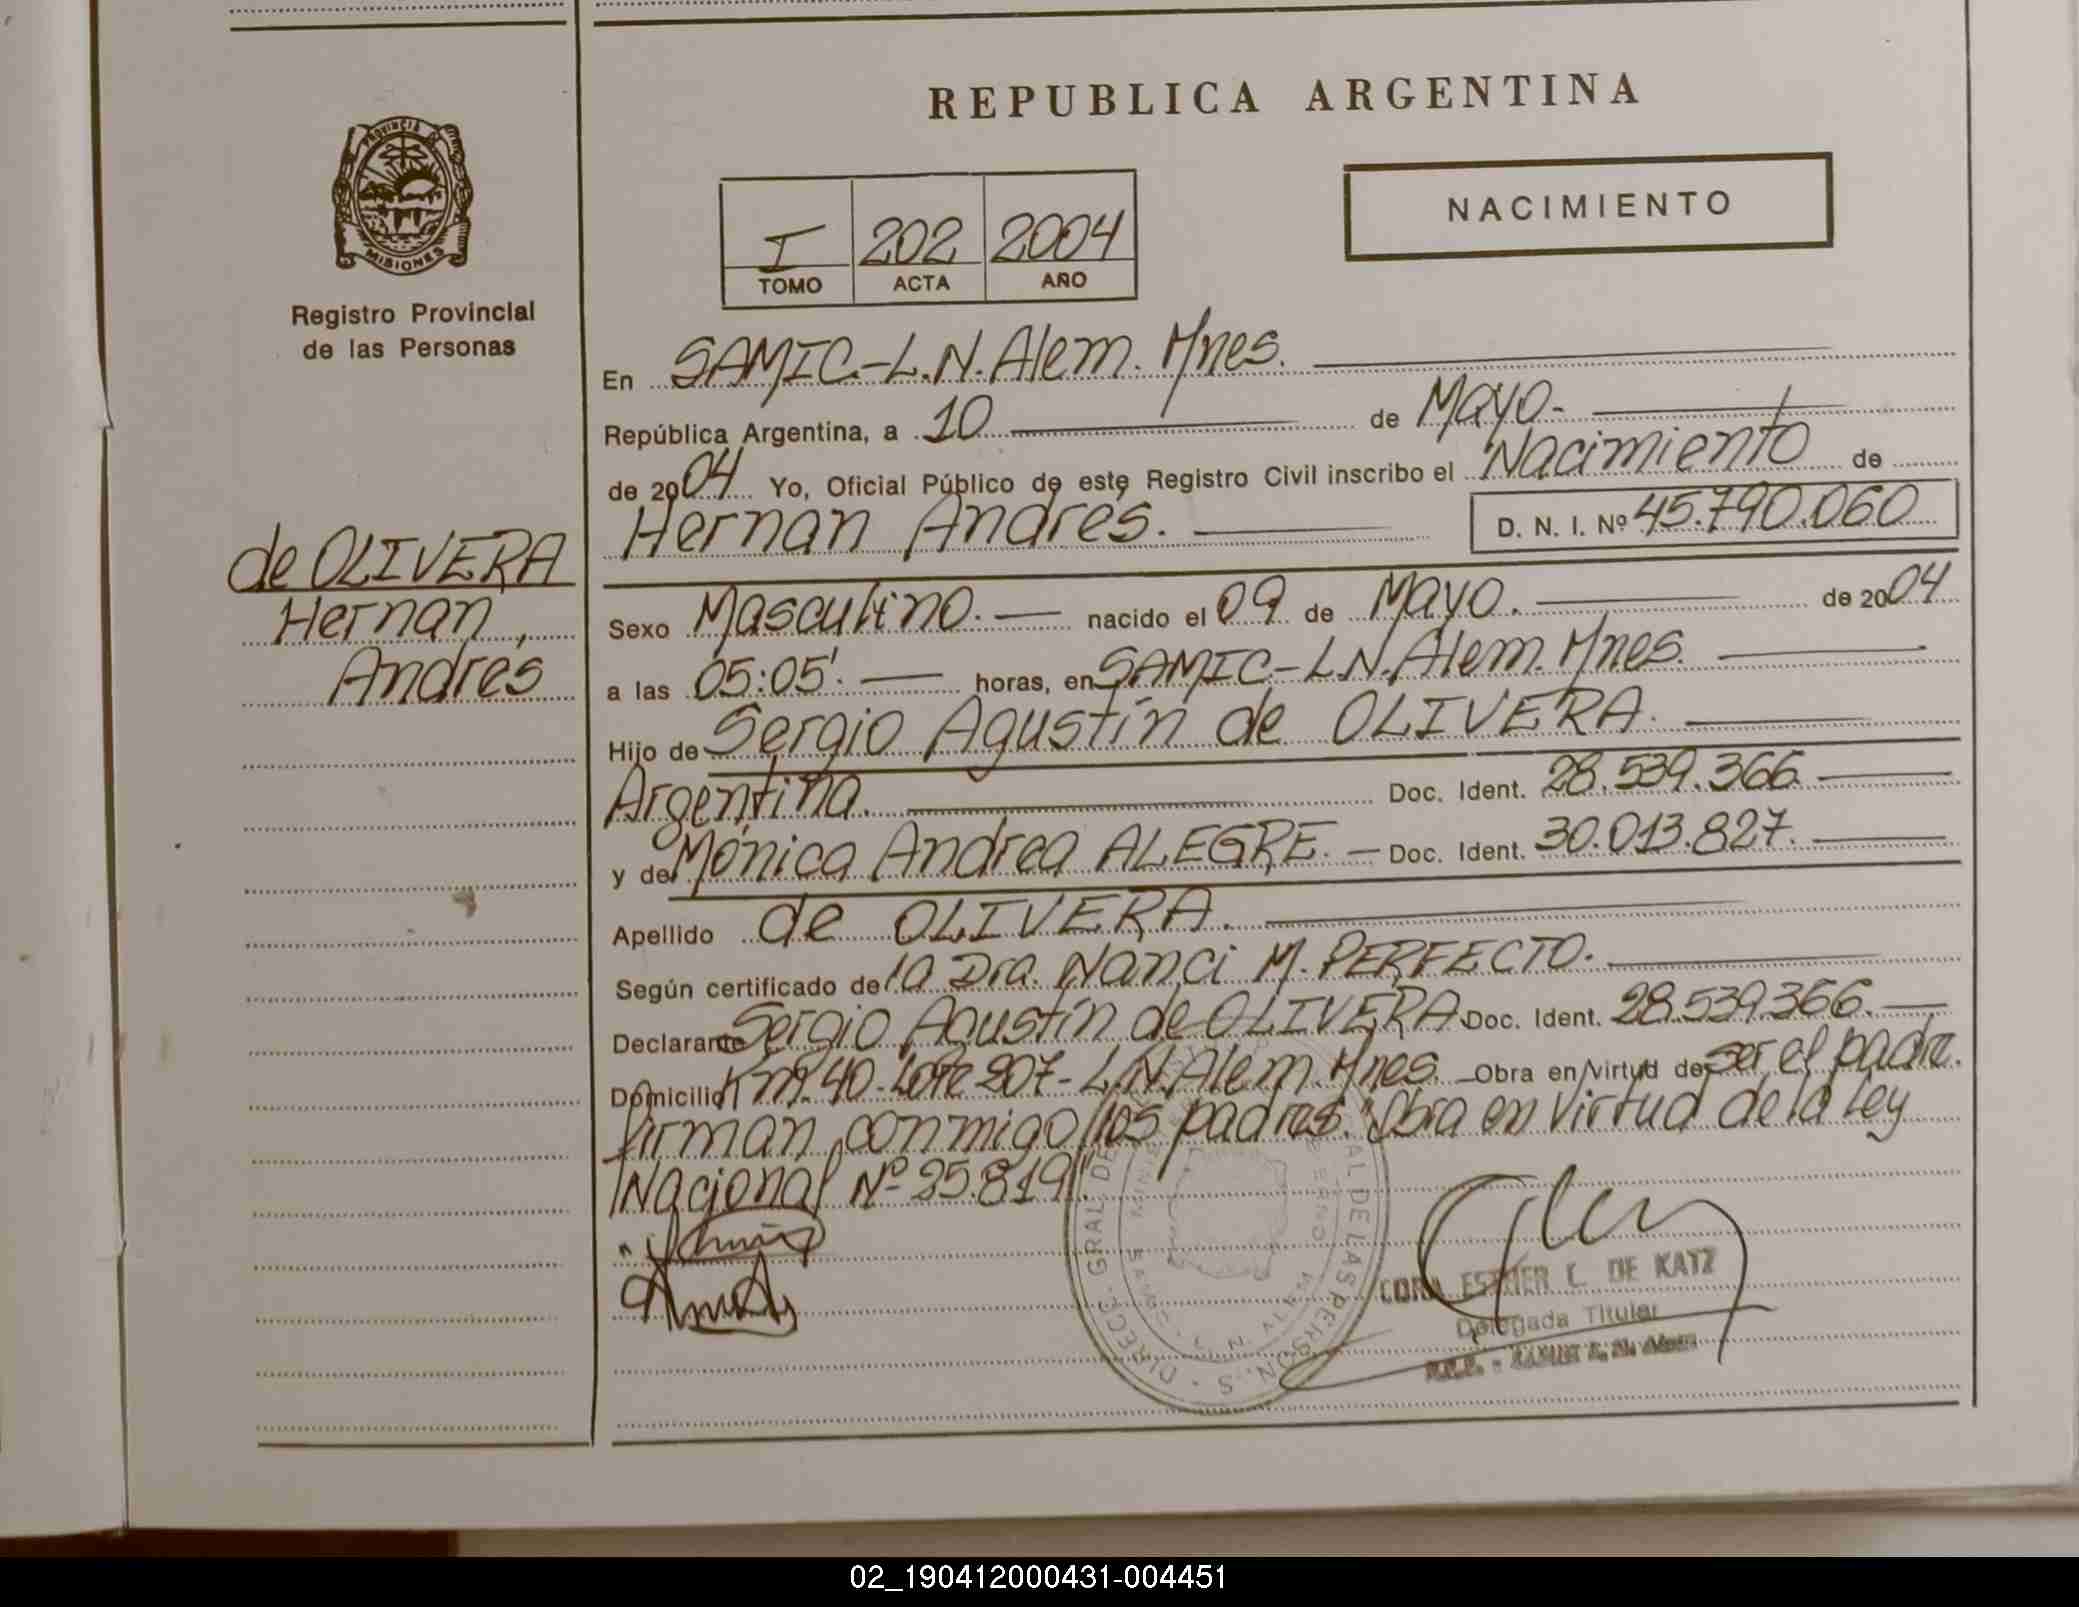 REPUBLICA ARGENTINA
PROVINCIA DE MISIONES
Registro Provincial
de las Personas
NACIMIENTO
I 202 2004
TOMO ACTA AÑO
En SAMIC.-L.N.Alem. Mnes.
República Argentina, a 10 de Mayo.-
de 2004 Yo, Oficial Público de este Registro Civil inscribo el Nacimiento de
Hernan Andrés. D. N. I. Nº 45.790.060
de OLIVERA
Hernan,
Andrés
Sexo Masculino. nacido el 09 de Mayo. de 2004
a las 05:05'. horas, en SAMIC-L.N.Alem. Mnes.
Hijo de Sergio Agustín de OLIVERA.
Argentina. Doc. Ident. 28.539.366
y de Mónica Andrea ALEGRE. Doc. Ident. 30.013.827.
Apellido de OLIVERA.
Según certificado de la Dra. Nanci M. PERFECTO.
Declarante Sergio Agustín de OLIVERA. Doc. Ident. 28.539.366.
Domicilio Km. 40-Lote 207-L.N.Alem. Mnes. Obra en virtud de ser el padre.
Firman conmigo los padres. "Obra en virtud de la Ley
Nacional Nº 25.819".
DIRECC. GRAL. DE AL DE LAS PERSON S
CORA ESTHER L. DE KATZ
Delegada Titular
02_190412000431-004451